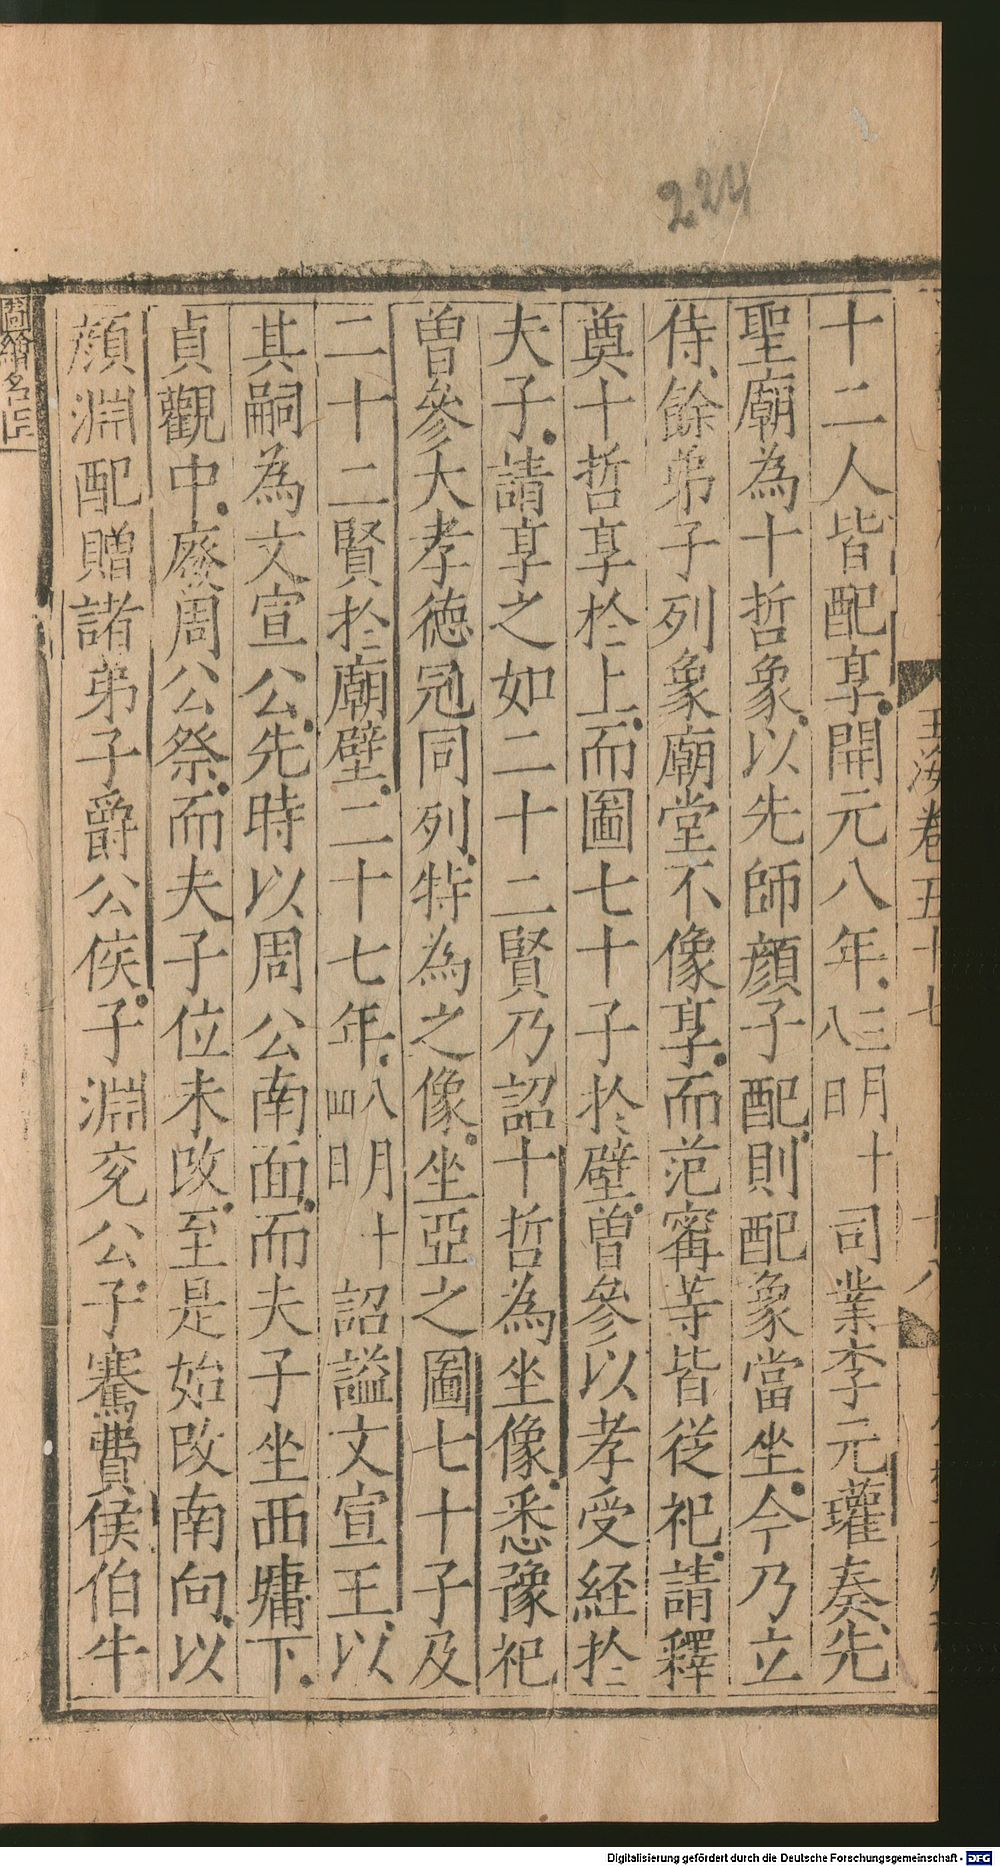 224
玉海卷五十七
十八
十二人皆配享開元八年三月十八日司業李元瓘奏先
聖廟為十哲象以先師顔子配則配象當坐今乃立
侍餘弟子列象廟堂不像享而范甯等皆從祀請釋
奠十哲享於上而圖七十子於壁曽參以孝受經於
夫子請享之如二十二賢乃詔十哲為坐像悉豫祀
曽參大孝德冠同列特為之像坐亞之圖七十子及
二十二賢於廟壁二十七年八月十四日詔謚文宣王以
其嗣為文宣公先時以周公南面而夫子坐西墉下
貞觀中廢周公祭而夫子位未改至是始改南向以
顔淵配贈諸弟子爵公侯子淵兖公子騫費侯伯牛
圖繪名臣
Digitalisierung gefördert durch die Deutsche Forschungsgemeinschaft - DFG